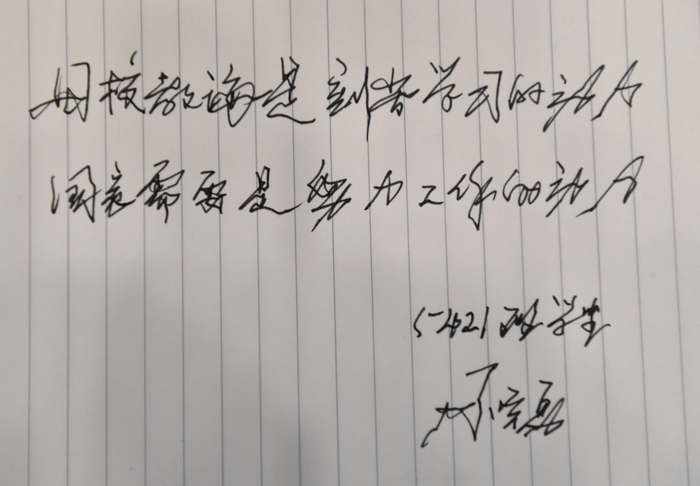 母校教诲是刻苦学习的动力
国家需要是努力工作的动力
班学生